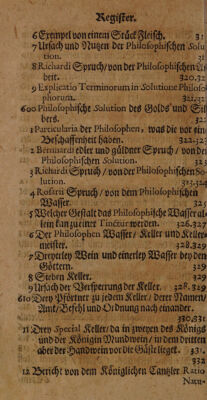 Register.
6 Exempel von einem Stück Fleisch. 31
7 Ursach und Nutzen der Philosophischen Solu
tion. 31
8 Richardi Spruch/ von der Philosophischen
breit. 320.32
9 Explicatio Terminorum in Solutione Philosof
phorum. 321.32
600 Philosophische Solution des Golds und Sil
bers
1 Particularia der Philosophen, was die vor ein
Beschaffenheit haben. 322.32
2 Bernhardi edler und güldner Spruch/ von der
Philosophischen Solution. 323
3 Richardi Spruch/ von der Philosophischen So
lution. 323.324
4 Rosarii Spruch/ von dem Philosophischen
Wasser. 325
5 Welcher Gestalt das Philosophische Wasser al
lein kan zu einer Tinctur werden. 326.327
6 Der Philosophen Wasser/ Keller und Keller
meister. 328.329
7 Dreyerley Wein und einerley Wasser bey den
Göttern. 329
8 Sieben Keller. 329
9 Ursach der Versperrung der Keller. 328.329
610 Drey Pförtner zu jedem Keller/ derer Namen/
Amt/ Befehl und Ordnung nach einander.
330.331
11 Drey Special Keller/ da in zweyen des Königs
und der Königin Mundwein/ in dem dritten
aber der Handwein vor die Gäste lieget. 331.
332
12 Bericht von dem Königlichen Cantzler Ratio
Natu-